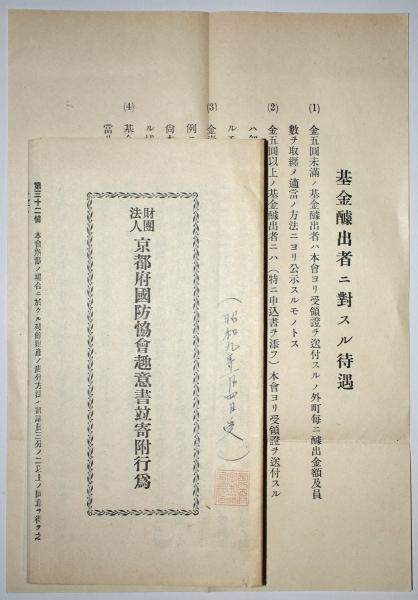 基金醵出者ニ對スル待遇
(1) 金五圓未滿ノ基金醵出者ハ本會ヨリ受領證ヲ送付スルノ外町每ニ醵出金額及員
數ヲ取纒メ適當ノ方法ニヨリ公示スルモノトス
(2) 金五圓以上ノ基金醵出者ニハ(特ニ申込書ヲ添フ)本會ヨリ受領證ヲ送付スル
(3)
例
尙
(4) 基
當
財團法人 京都府國防協會趣意書竝寄附行爲
(昭和九年一月四日受)
第三十二條 本會解散ノ場合ニ於ケル殘餘財產ノ處分方法ハ評議員三分ノ二以上ノ同意ヲ得